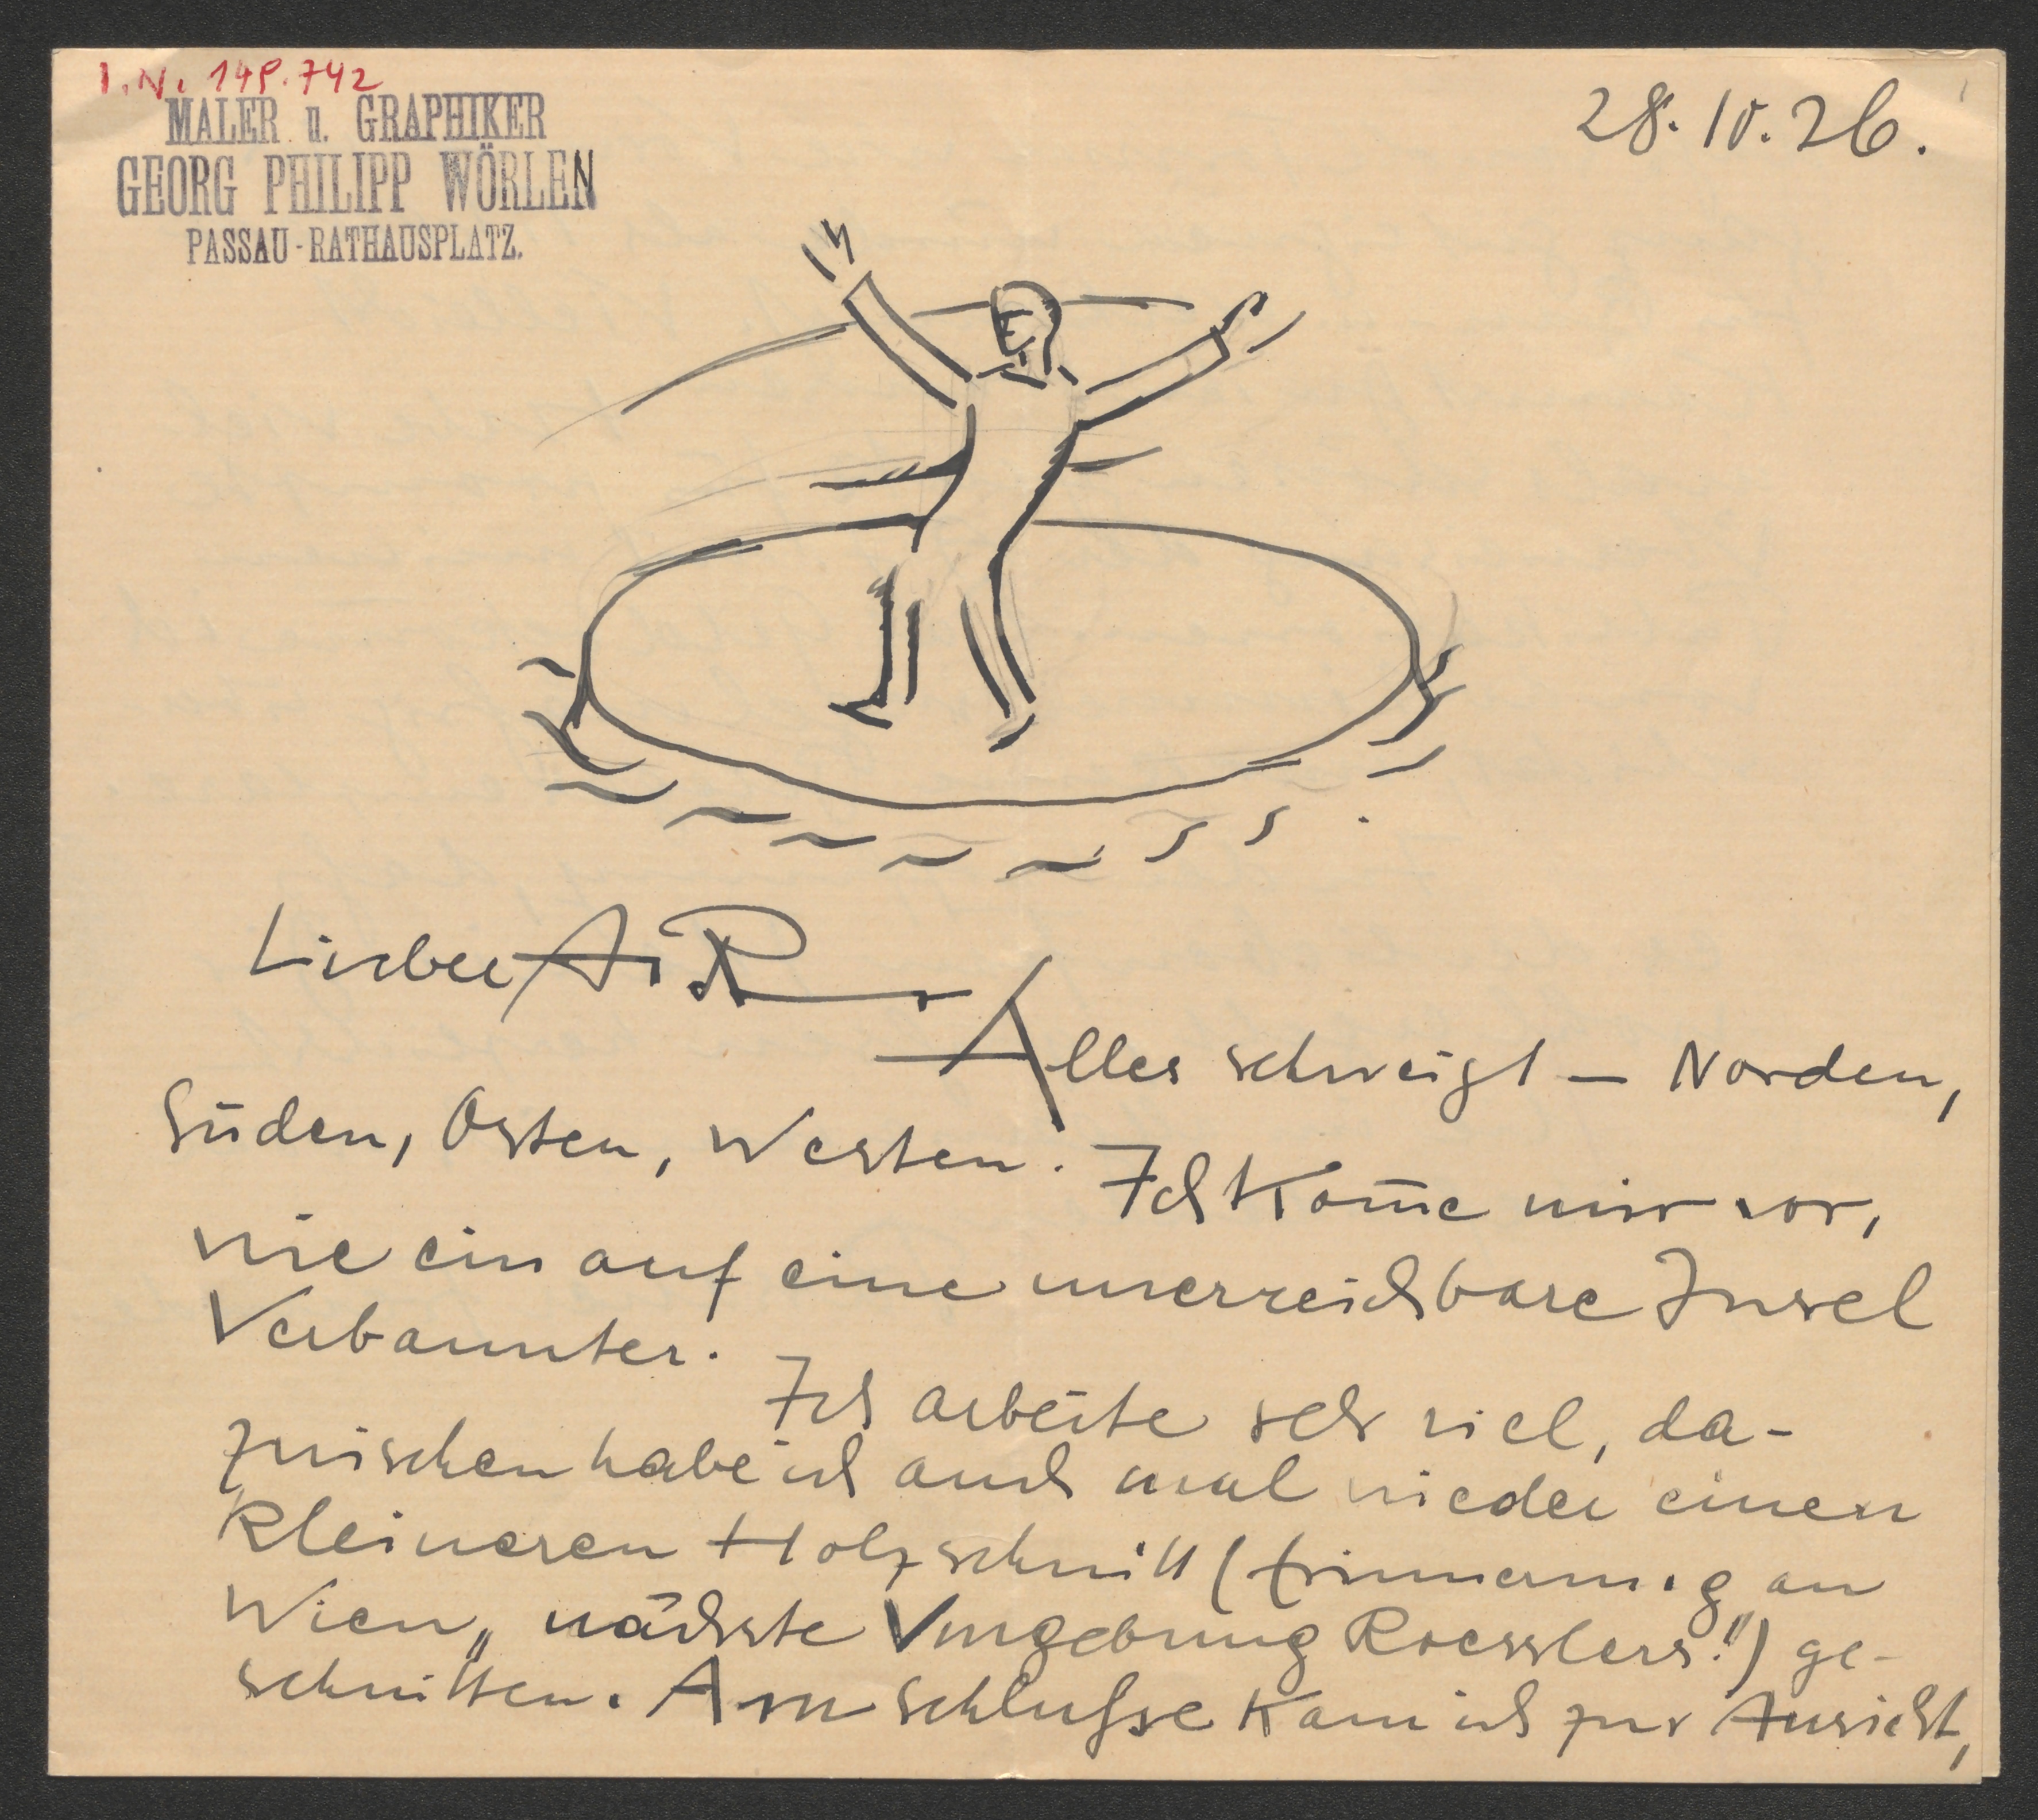 I.N. 148.742
MALER u. GRAPHIKER
GEORG PHILIPP WÖRLEN
PASSAU - RATHAUSPLATZ.
28. 10. 26.
Lieber A R
Alles schweigt — Norden,
Süden, Osten, Westen. Ich kom̄e mir vor,
wie ein auf eine unerreichbare Insel
Verbannter.
Ich arbeite sehr viel, da-
zwischen habe ich auch mal wieder einen
kleineren Holzschnitt (Erinnerung an
Wien „nächste Umgebung Roesslers!") ge-
schnitten. Am Schluſse kam ich zur Ansicht,